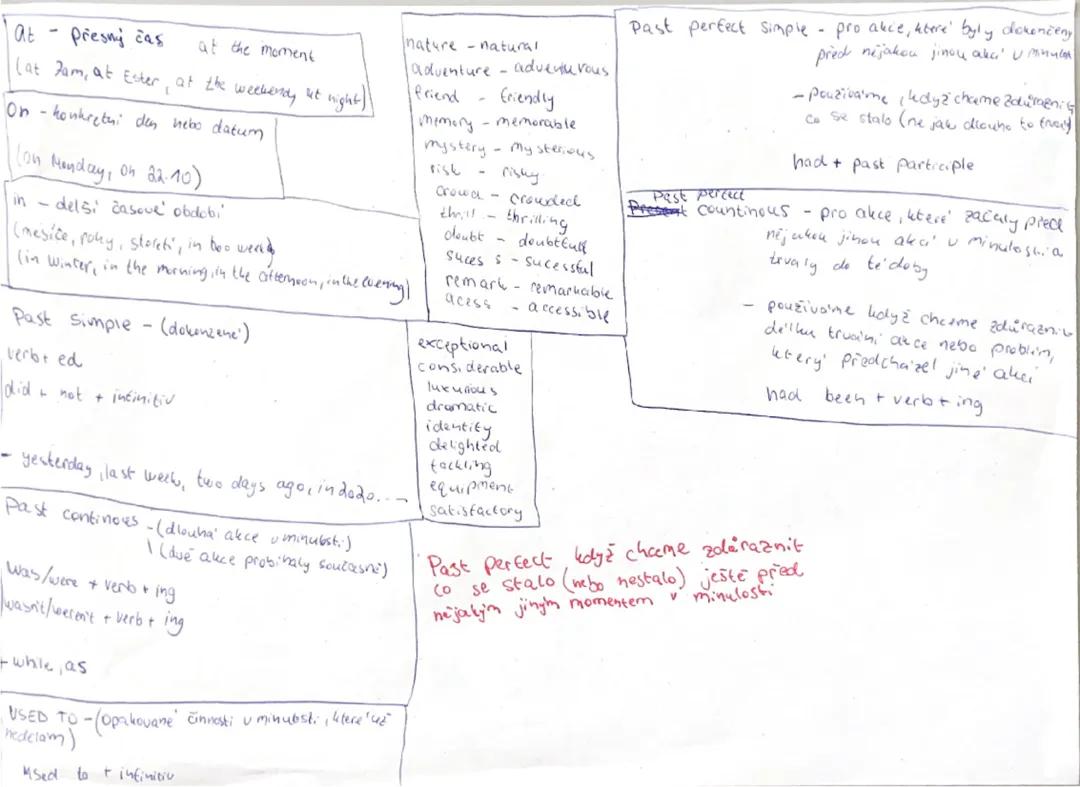 at - přesný čas at the moment
(at 7am, at Ester, at the weekend, at night)
On - konkretní den nebo datum
(on Monday, on 22.10)
in - delší časové období
(měsíce, roky, století, in two weeks)
(in winter, in the morning, in the afternoon, in the evening)
Past simple - (dokončené)
verb + ed
did + not + infinitiv
- yesterday, last week, two days ago, in 2020...
Past continous - (dlouhá akce v minulosti)
\ (dvě akce probíhaly současně)
Was/were + verb + ing
wasn't/weren't + verb + ing
+ while, as
USED TO - (opakované činnosti v minulosti, které už
nedělam)
used to + infinitiv
nature - natural
adventure - adventurous
friend - friendly
memory - memorable
mystery - mysterious
risk - risky
crowd - crouded
thrill - thrilling
doubt - doubtfull
suces s - sucessful
remark - remarkable
acess - accessible
exceptional
considerable
luxurious
dramatic
identity
delighted
tackling
equipment
satisfactory
Past perfect když chceme zdůraznit
co se stalo (nebo nestalo) ještě před
nějakým jiným momentem v minulosti
Past perfect simple - pro akce, které byly dokončeny
před nějakou jinou akcí v minulosti
- používáme, když chceme zdůraznit
co se stalo (ne jak dlouho to trvalo)
had + past participle
Past perfect
Present countinous - pro akce, které začaly před
nějakou jinou akcí v minulosti a
trvaly do té doby
- používáme když chceme zdůraznit
délku trvání akce nebo problém,
který předcházel jiné akci
had been + verb + ing